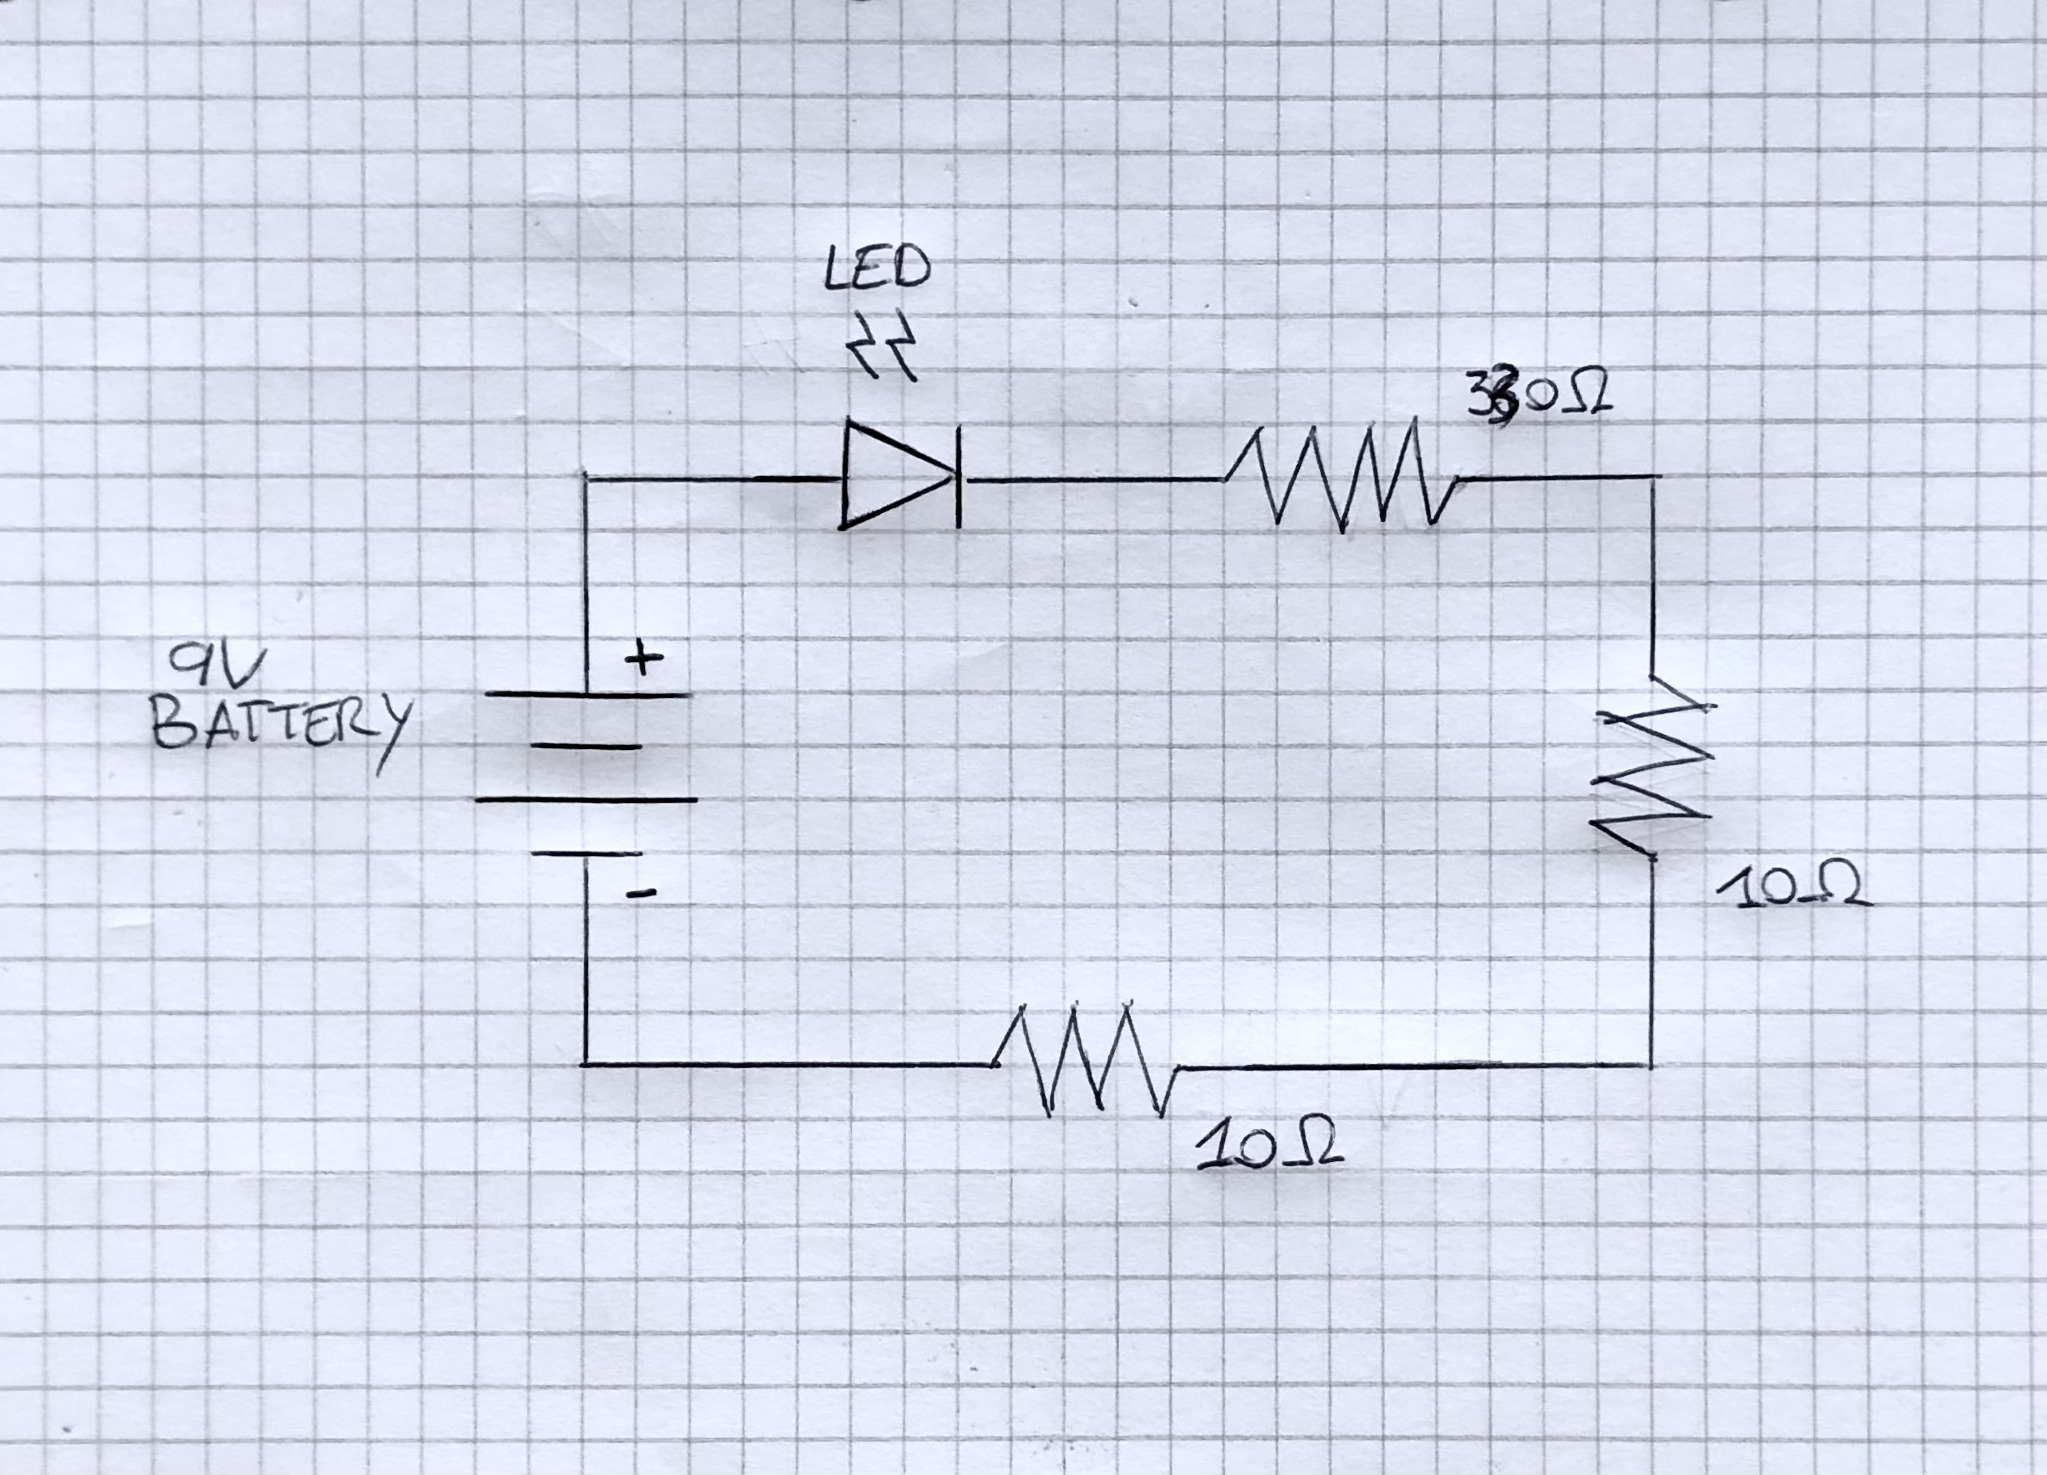 LED
330Ω
9V
BATTERY
+
-
10Ω
10Ω